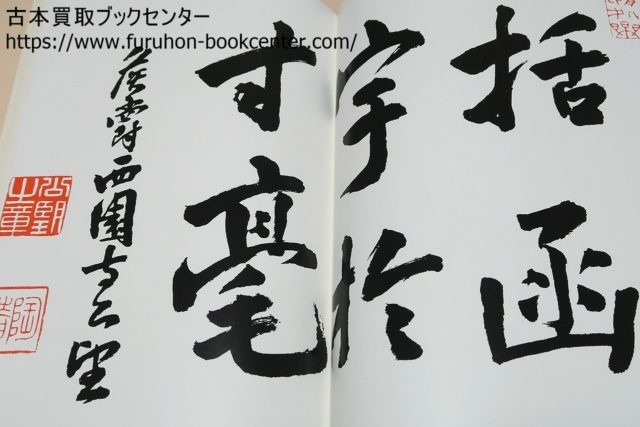 古本買取ブックセンター
https://www.furuhon-bookcenter.com/
括函
宇於
寸毫
侯爵西園寺公望
公望之章